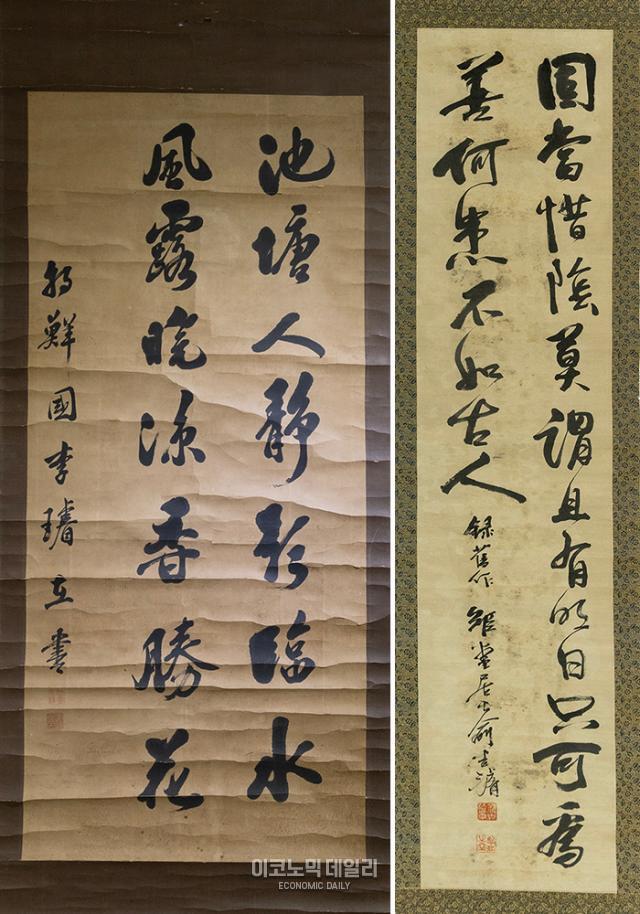 池塘人靜影臨水
風露晚凉香勝花
朝鮮國李璿在書
固當惜陰莫謂且有明日只可爲
善何患不如古人
錄舊作 矩堂居士兪吉濬
이코노믹데일리
ECONOMIC DAILY